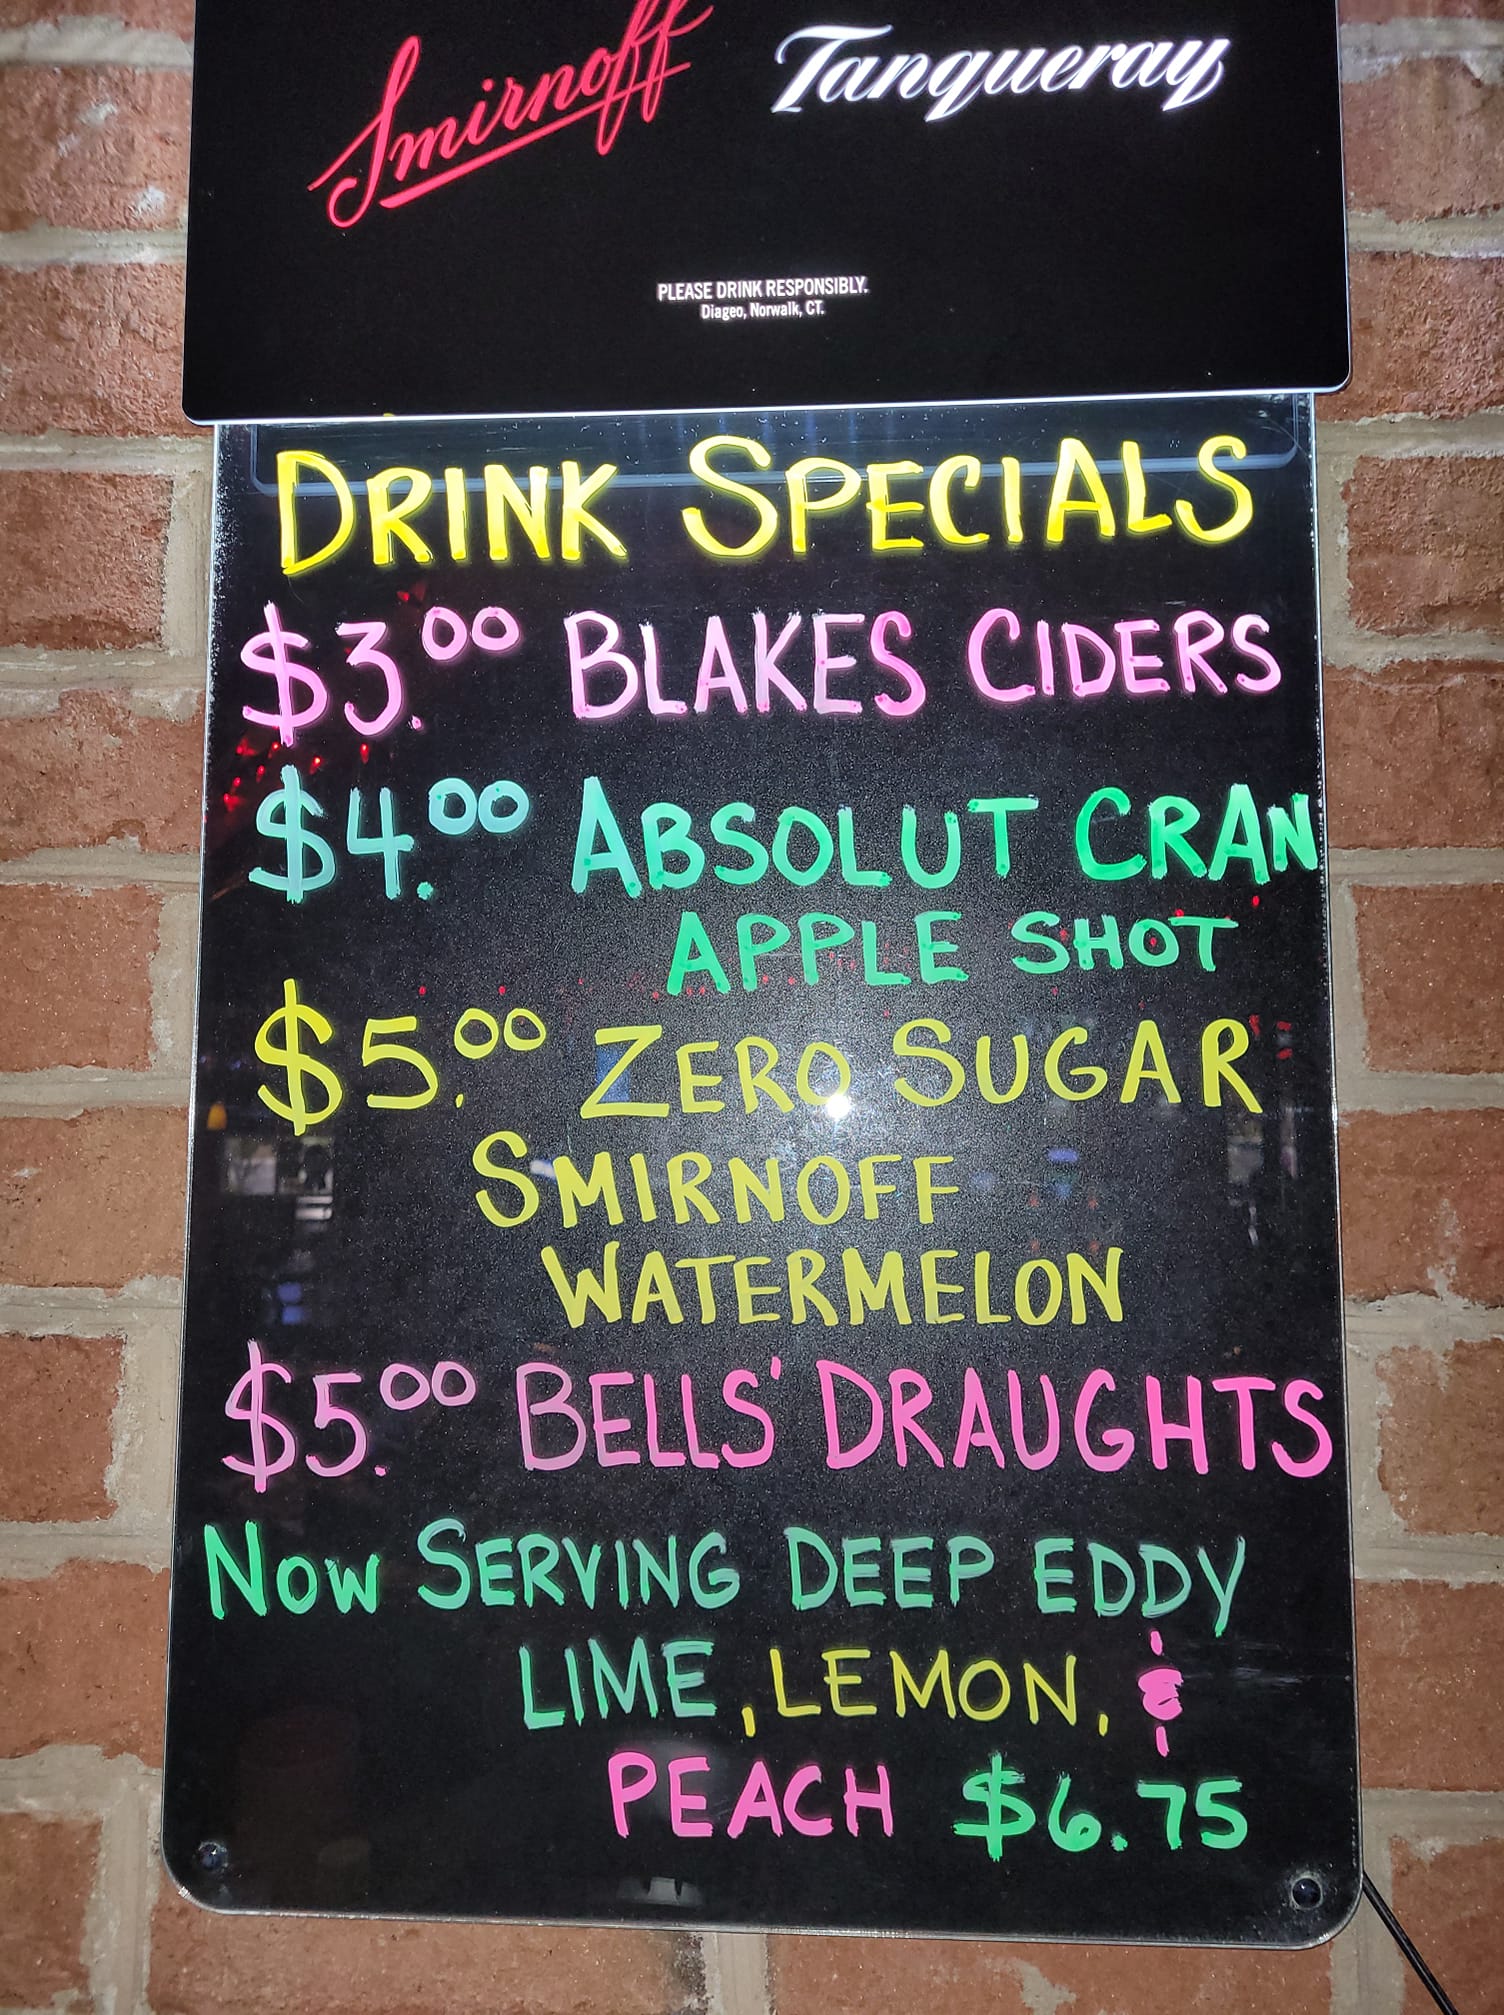 Smirnoff Tanqueray
PLEASE DRINK RESPONSIBLY.
Diageo, Norwalk, CT.
DRINK SPECIALS
$3.00 BLAKES CIDERS
$4.00 ABSOLUT CRAN
APPLE SHOT
$5.00 ZERO SUGAR
SMIRNOFF
WATERMELON
$5.00 BELLS' DRAUGHTS
NOW SERVING DEEP EDDY
LIME, LEMON, &
PEACH $6.75